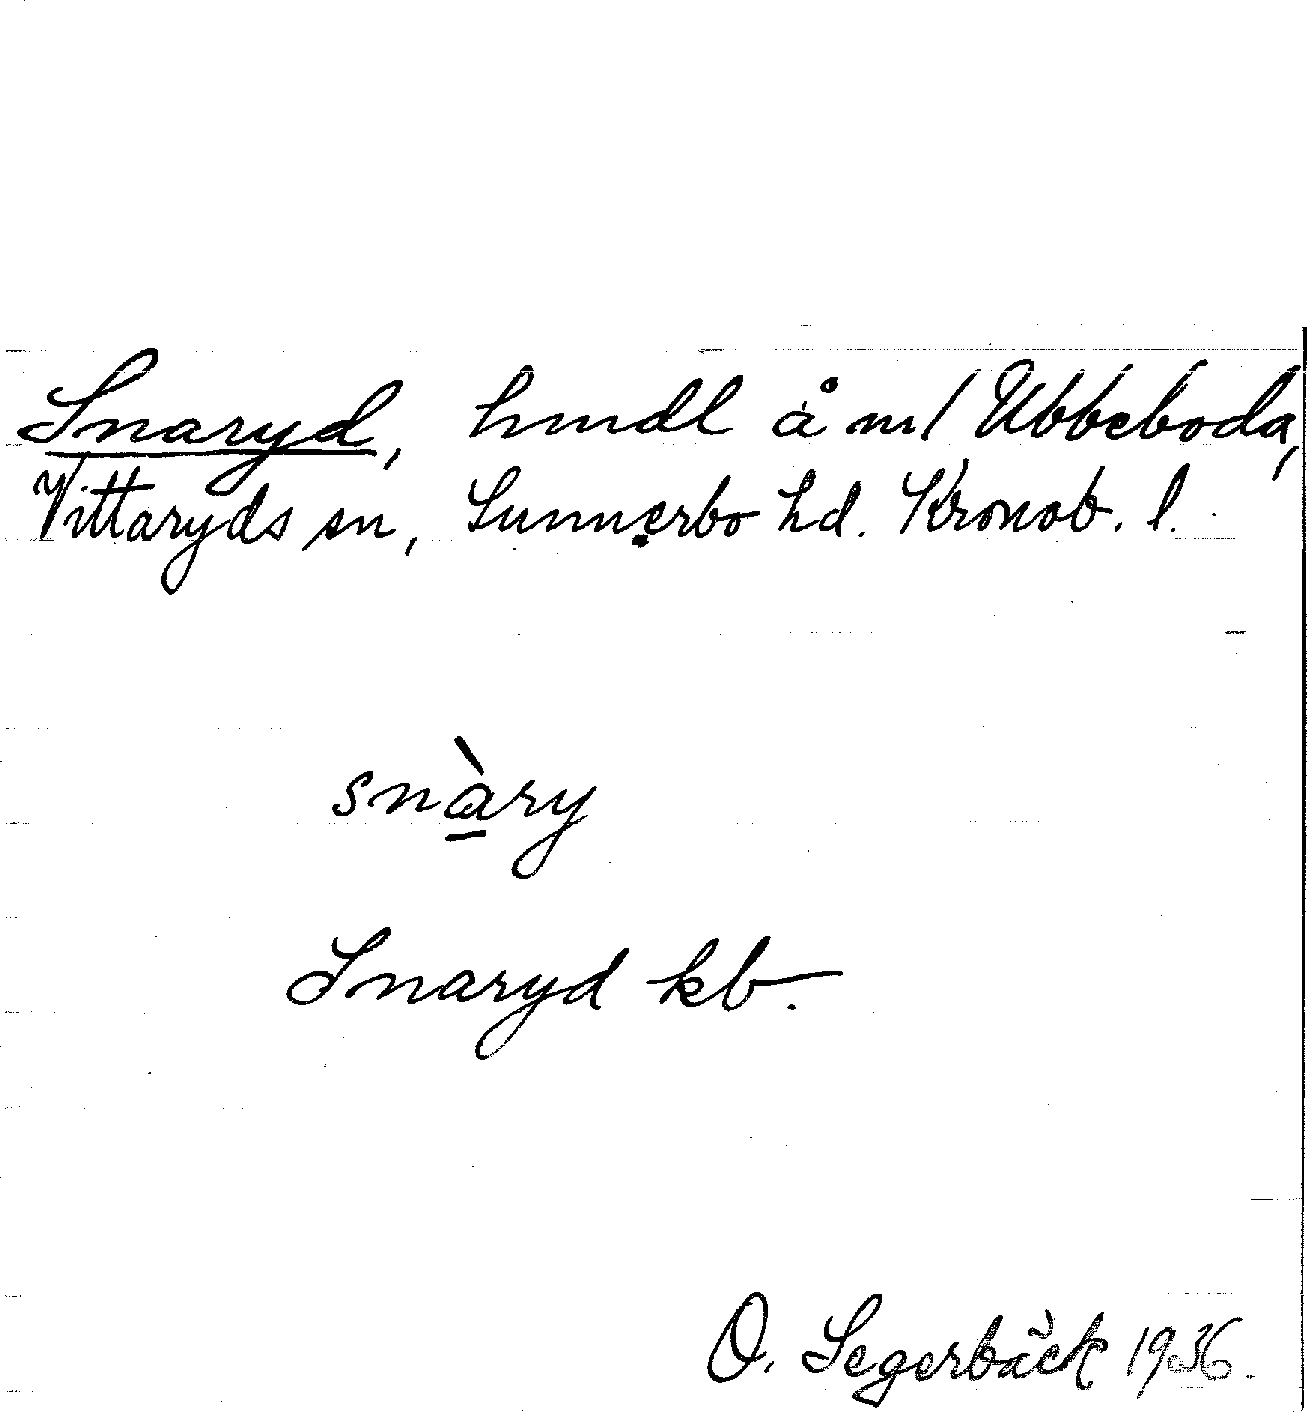 Snaryd, hmdl å m/ Ubbeboda,
Vittaryds sn, Sunnerbo hd. Kronob. l.
snàry
Snaryd kb.
O. Segerbäck 1936.